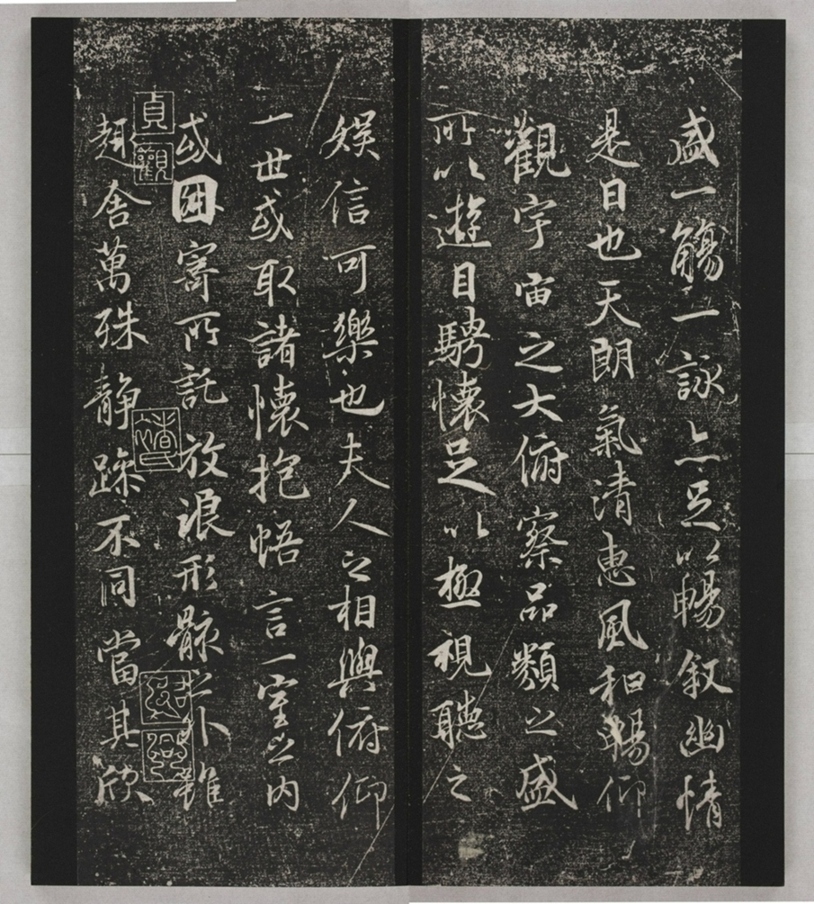 盛一觴一詠亦足以暢叙幽情
是日也天朗氣清惠風和暢仰
觀宇宙之大俯察品類之盛
所以遊目騁懷足以極視聽之
娛信可樂也夫人之相與俯仰
一世或取諸懷抱悟言一室之內
或因寄所託放浪形骸之外雖
趣舍萬殊静躁不同當其欣
貞觀